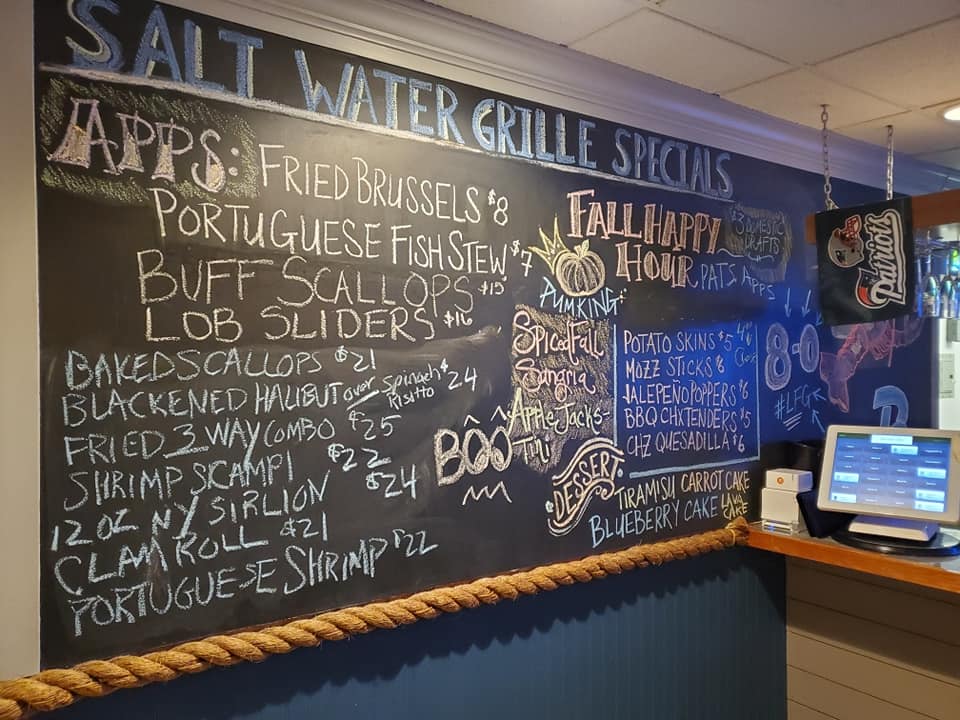 SALT WATER GRILLE SPECIALS
APPS:
FRIED BRUSSELS $8
PORTUGUESE FISH STEW $7
BUFF SCALLOPS $15
LOB SLIDERS $16
BAKED SCALLOPS $21
BLACKENED HALIBUT over Spinach Risitto $24
FRIED 3 WAY COMBO $25
SHRIMP SCAMPI $22
12 OZ NY SIRLION $24
CLAM ROLL $21
PORTUGUESE SHRIMP $22
PUMKING
Spiced Fall
Sangria
Apple Jacks-
Tini
BOO
FALL HAPPY
HOUR
$3 DOMESTIC
DRAFTS
PATS APPS
POTATO SKINS $5
MOZZ STICKS $6
JALEPEÑO POPPERS $6
BBQ CHX TENDERS $5
CHZ QUESADILLA $6
DESSERT:
TIRAMISU CARROT CAKE
BLUEBERRY CAKE LAVA CAKE
8-0
#LFG
Patriots